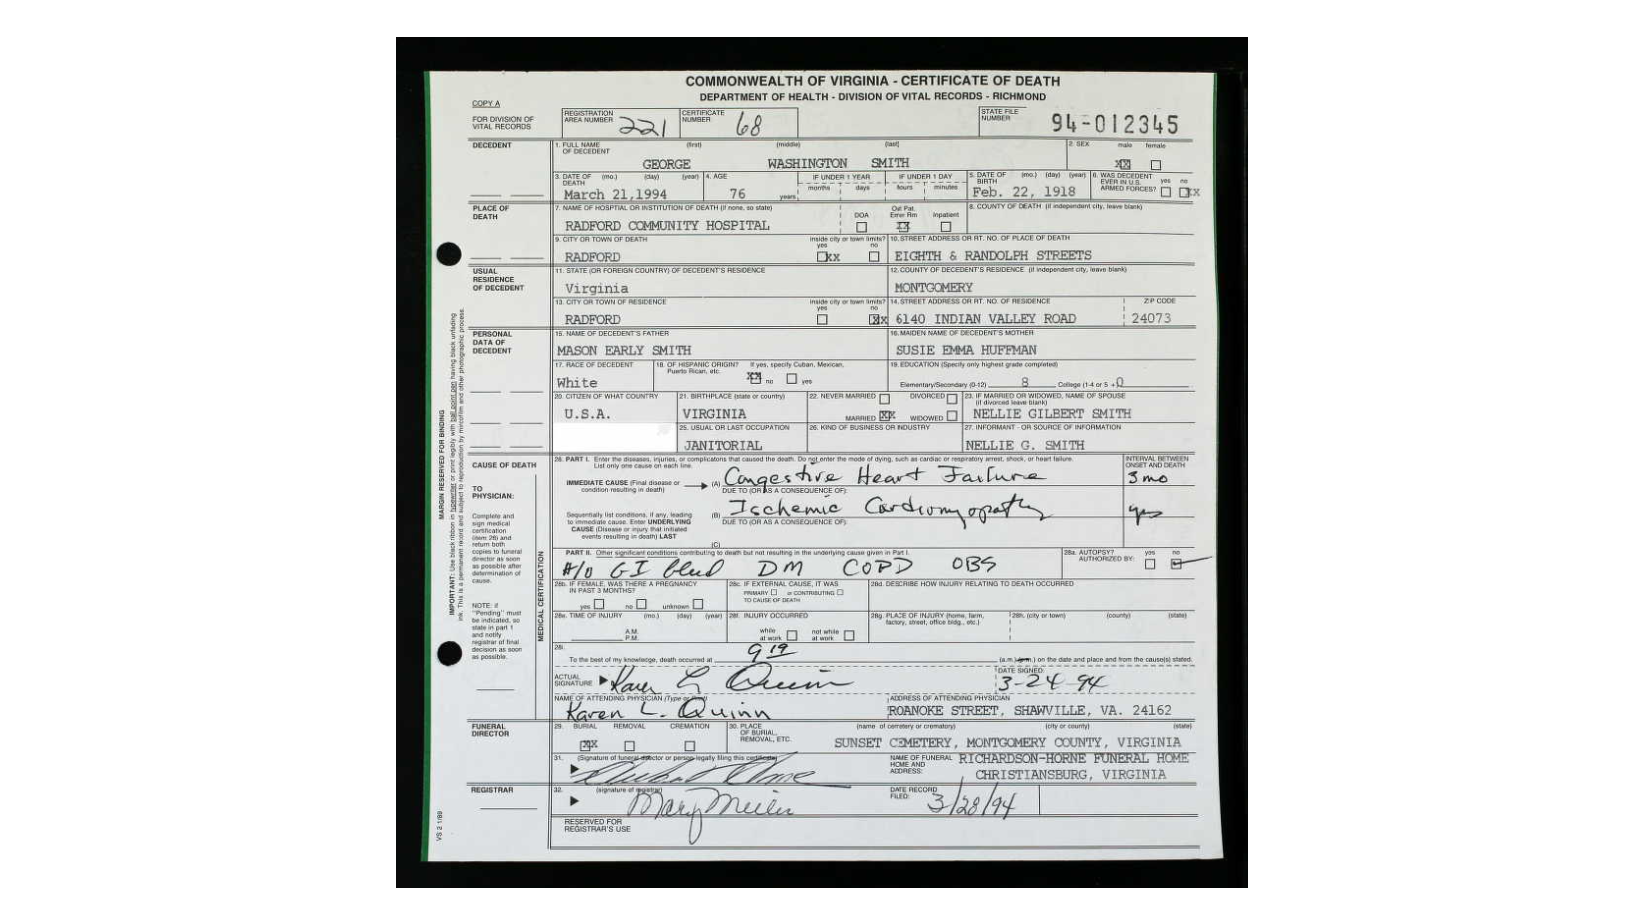 COMMONWEALTH OF VIRGINIA - CERTIFICATE OF DEATH
DEPARTMENT OF HEALTH - DIVISION OF VITAL RECORDS - RICHMOND
COPY A
FOR DIVISION OF VITAL RECORDS
REGISTRATION AREA NUMBER 221
CERTIFICATE NUMBER 68
STATE FILE NUMBER 94-012345
DECEDENT
1. FULL NAME OF DECEDENT (first) (middle) (last)
GEORGE WASHINGTON SMITH
2. SEX male female
XX
3. DATE OF DEATH (mo.) (day) (year)
March 21,1994
4. AGE
76 years
IF UNDER 1 YEAR months days
IF UNDER 1 DAY hours minutes
5. DATE OF BIRTH (mo.) (day) (year)
Feb. 22, 1918
6. WAS DECEDENT EVER IN U.S. ARMED FORCES? yes no
XX
PLACE OF DEATH
7. NAME OF HOSPTIAL OR INSTITUTION OF DEATH (if none, so state)
RADFORD COMMUNITY HOSPITAL
DOA
Out Pat. Emer Rm
Inpatient
8. COUNTY OF DEATH (if independent city, leave blank)
9. CITY OR TOWN OF DEATH
RADFORD
inside city or town limits? yes no
XX
10. STREET ADDRESS OR RT. NO. OF PLACE OF DEATH
EIGHTH & RANDOLPH STREETS
USUAL RESIDENCE OF DECEDENT
11. STATE (OR FOREIGN COUNTRY) OF DECEDENT'S RESIDENCE
Virginia
12. COUNTY OF DECEDENT'S RESIDENCE (if independent city, leave blank)
MONTGOMERY
13. CITY OR TOWN OF RESIDENCE
RADFORD
inside city or town limits? yes no
XX
14. STREET ADDRESS OR RT. NO. OF RESIDENCE
6140 INDIAN VALLEY ROAD
ZIP CODE
24073
PERSONAL DATA OF DECEDENT
15. NAME OF DECEDENT'S FATHER
MASON EARLY SMITH
16. MAIDEN NAME OF DECEDENT'S MOTHER
SUSIE EMMA HUFFMAN
17. RACE OF DECEDENT
White
18. OF HISPANIC ORIGIN? If yes, specify Cuban, Mexican, Puerto Rican, etc.
XX no yes
19. EDUCATION (Specify only highest grade completed)
Elementary/Secondary (0-12) 8 College (1-4 or 5 +) 0
20. CITIZEN OF WHAT COUNTRY
U.S.A.
21. BIRTHPLACE (state or country)
VIRGINIA
22. NEVER MARRIED DIVORCED
MARRIED XX WIDOWED
23. IF MARRIED OR WIDOWED, NAME OF SPOUSE (if divorced leave blank)
NELLIE GILBERT SMITH
25. USUAL OR LAST OCCUPATION
JANITORIAL
26. KIND OF BUSINESS OR INDUSTRY
27. INFORMANT - OR SOURCE OF INFORMATION
NELLIE G. SMITH
CAUSE OF DEATH
TO PHYSICIAN:
Complete and sign medical certification (item 28) and return both copies to funeral director as soon as possible after determination of cause.
NOTE: If "Pending" must be indicated, so state in part 1 and notify registrar of final decision as soon as possible.
MEDICAL CERTIFICATION
MARGIN RESERVED FOR BINDING
IMPORTANT: Use black ribbon in typewriter or print legibly with ball point pen having black unfading ink. This is a permanent record and subject to reproduction by microfilm and other photographic process.
28. PART I. Enter the diseases, injuries, or complicatons that caused the death. Do not enter the mode of dying, such as cardiac or respiratory arrest, shock, or heart failure.
List only one cause on each line.
INTERVAL BETWEEN ONSET AND DEATH
IMMEDIATE CAUSE (Final disease or condition resulting in death)
(A) Congestive Heart Failure 3 mo
DUE TO (OR AS A CONSEQUENCE OF):
Sequentially list conditions, if any, leading to immediate cause. Enter UNDERLYING CAUSE (Disease or injury that initiated events resulting in death) LAST
(B) Ischemic Cardiomyopathy yrs
DUE TO (OR AS A CONSEQUENCE OF):
(C)
PART II. Other significant conditions contributing to death but not resulting in the underlying cause given in Part I.
H/O GI bleed DM COPD OBS
28a. AUTOPSY? AUTHORIZED BY: yes no
28b. IF FEMALE, WAS THERE A PREGNANCY IN PAST 3 MONTHS?
yes no unknown
28c. IF EXTERNAL CAUSE, IT WAS
PRIMARY or CONTRIBUTING
TO CAUSE OF DEATH
28d. DESCRIBE HOW INJURY RELATING TO DEATH OCCURRED
28e. TIME OF INJURY (mo.) (day) (year)
A.M.
P.M.
28f. INJURY OCCURRED
while at work not while at work
28g. PLACE OF INJURY (home, farm, factory, street, office bldg., etc.)
28h. (city or town) (county) (state)
28i.
To the best of my knowledge, death occurred at 9 19 (a.m.) (p.m.) on the date and place and from the cause(s) stated.
ACTUAL SIGNATURE Karen L Quinn
DATE SIGNED:
3-24-94
NAME OF ATTENDING PHYSICIAN (Type or Print)
Karen L. Quinn
ADDRESS OF ATTENDING PHYSICIAN
ROANOKE STREET, SHAWVILLE, VA. 24162
FUNERAL DIRECTOR
29. BURIAL REMOVAL CREMATION
XX
30. PLACE OF BURIAL, REMOVAL, ETC.
(name of cemetery or crematory) (city or county) (state)
SUNSET CEMETERY, MONTGOMERY COUNTY, VIRGINIA
31. (Signature of funeral director or person legally filing this certificate)
NAME OF FUNERAL HOME AND ADDRESS:
RICHARDSON-HORNE FUNERAL HOME
CHRISTIANSBURG, VIRGINIA
REGISTRAR
32. (signature of registrar)
Mary
DATE RECORD FILED:
3/28/94
RESERVED FOR REGISTRAR'S USE
VS 2 1/89